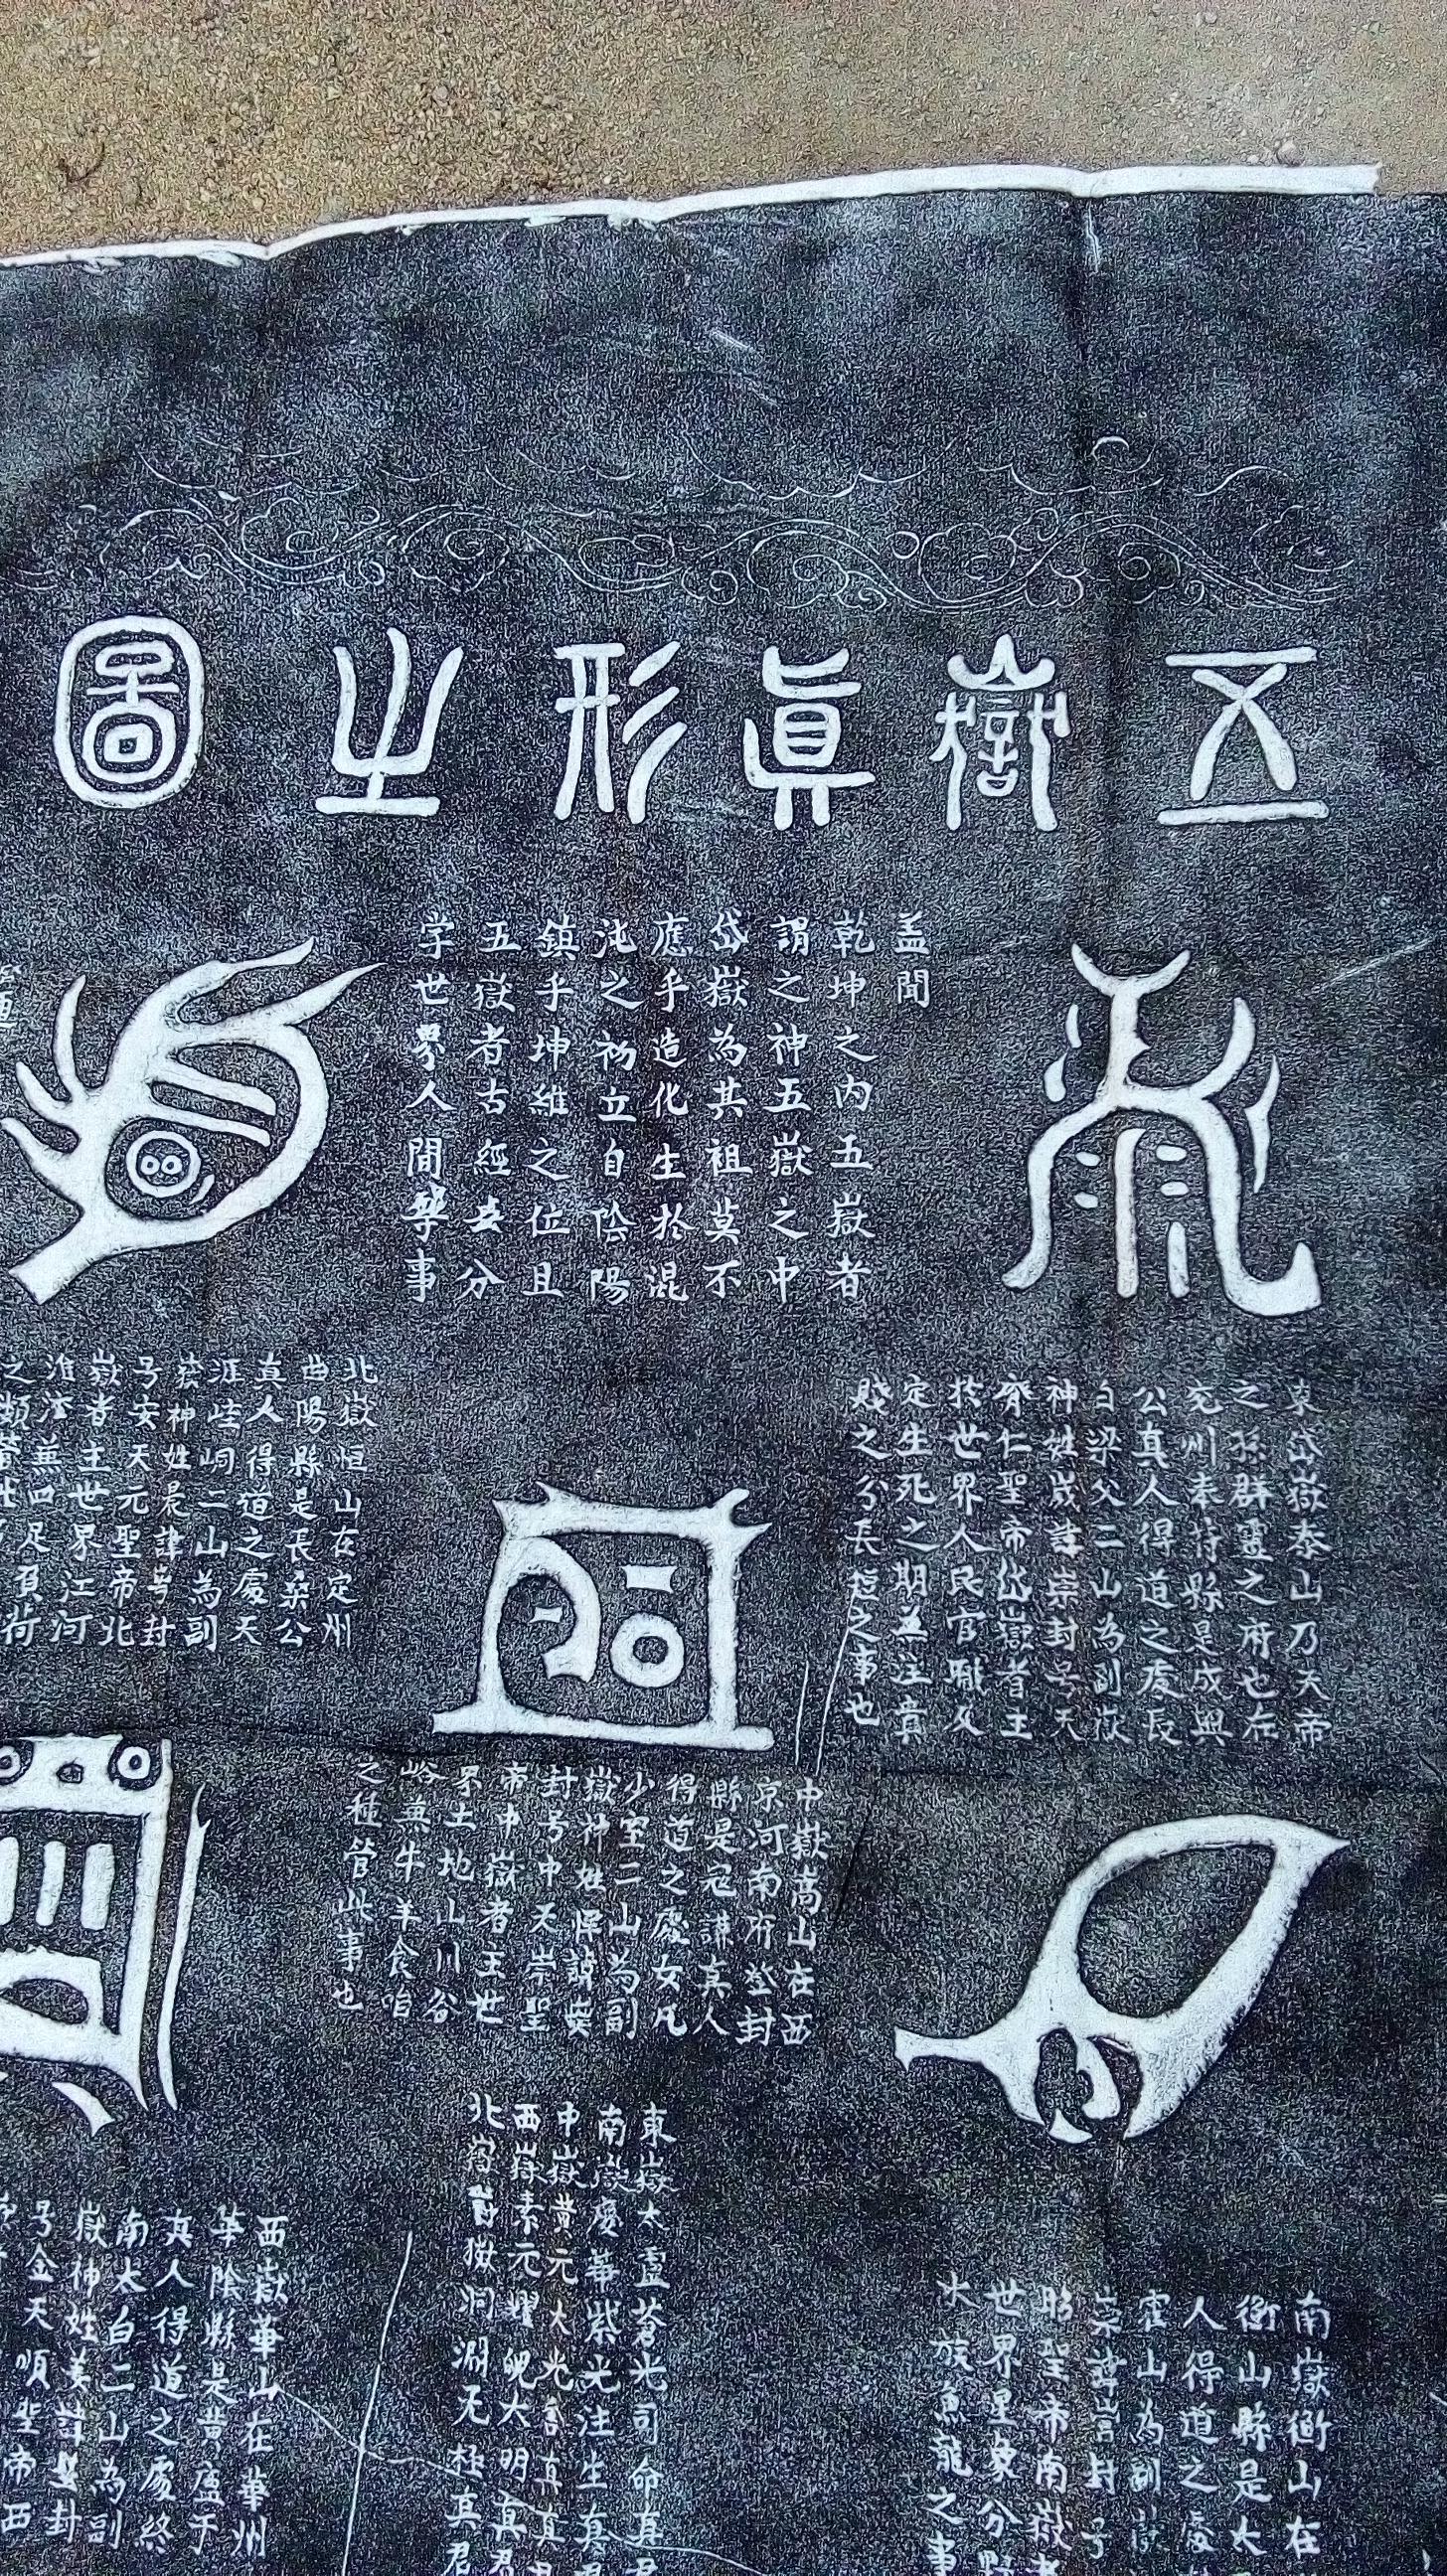 五嶽真形之圖
盖聞
乾坤之内五嶽者
謂之神五嶽之中
岱嶽為其祖莫不
應乎造化生於混
沌之初立自陰陽
鎮乎坤維之位且
五嶽者古經云分
学世界人間等事
東岱嶽泰山乃天帝
之孫群靈之府也在
兖州奉符縣是成興
公真人得道之處長
白梁父二山為副嶽
神姓歲諱崇封号天
齊仁聖帝岱嶽者主
於世界人民官職及
定生死之期兼注貴
賤之分長短之事也
北嶽恒山在定州
曲陽縣是長桑公
真人得道之處天
涯崆峒二山為副
嶽神姓晨諱号封
号安天元聖帝北
嶽者主世界江河
淮濟無四足負荷
之類管此
中嶽嵩山在西
京河南府登封
縣是冦謙真人
得道之處女几
少室二山為副
嶽神姓惲諱
封号中天崇聖
帝中嶽者主世
界土地山川谷
峪無牛羊食啗
之種管此事也
南嶽衡山在
衡山縣是太
人得道之處
霍山為副
諱封号
昭聖帝南嶽者
世界星象分野
水族魚龍之事
東嶽太虛蒼光司命真君
南嶽慶華紫光注生真君
中嶽黄元大光含真真君
西嶽素元耀魄大明真君
北嶽
洞淵无極真君
西嶽華山在華州
華陰縣是黄盧子
真人得道之處終
南太白二山為副
嶽神姓姜諱
封
号金天順聖帝西